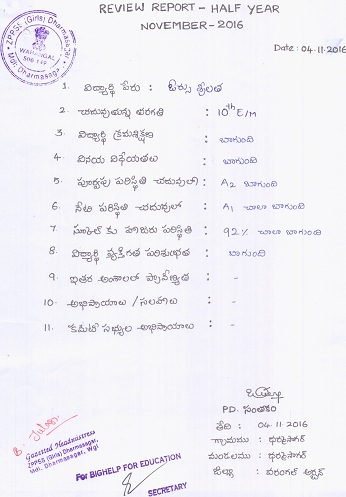 REVIEW REPORT - HALF YEAR
NOVEMBER - 2016
ZPPSS (Girls) Dharmasagar
WARANGAL
Mdl: Dharmasagar
Date: 04.11.2016
1. విద్యార్థి పేరు : శ్రీలత
2. చదువుతున్న తరగతి : 10th E/M
3. విద్యార్థి క్రమశిక్షణ : బాగుంది
4. వినయ విధేయతలు : బాగుంది
5. పూర్వపు పరిస్థితి చదువులో : A2 బాగుంది
6. నేటి పరిస్థితి చదువులో : A1 చాలా బాగుంది
7. స్కూల్ కు హాజరు పరిస్థితి : 92% చాలా బాగుంది
8. విద్యార్థి వ్యక్తిగత పరిశుభ్రత : బాగుంది
9. ఇతర అంశాలలో ప్రావీణ్యత : -
10. అభిప్రాయాలు / సలహాలు : -
11. కమిటీ సభ్యుల అభిప్రాయాలు : -
Gazetted Headmistress
ZPPSS (Girls) Dharmasagar,
Mdl. Dharmasagar, Wgl
For BIGHELP FOR EDUCATION
SECRETARY
P.D. సంతకం
తేది : 04.11.2016
గ్రామము : ధర్మసాగర్
మండలము : ధర్మసాగర్
జిల్లా : వరంగల్ అర్బన్